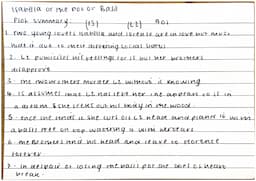 Isabella or the Pot of Basil
Plot summary: (IS) (LZ)
1. Two young lovers Isabella and Lorenzo are in love but must
hide it due to their differing social status
2. LZ his feelings for IS but her brothers
disapprove
3. The brothers LZ without IS knowing
4. IS assumes that LZ has left her. He appears to IS in
a dream & she seeks out his body in the wood
5. Once she finds it she cuts off LZ head and plants it with
a basil tree on top watering it with her tears
6. The Brothers find his head and leave to Florence
forever
7. In despair of losing the basil pot she dies of heart
break.